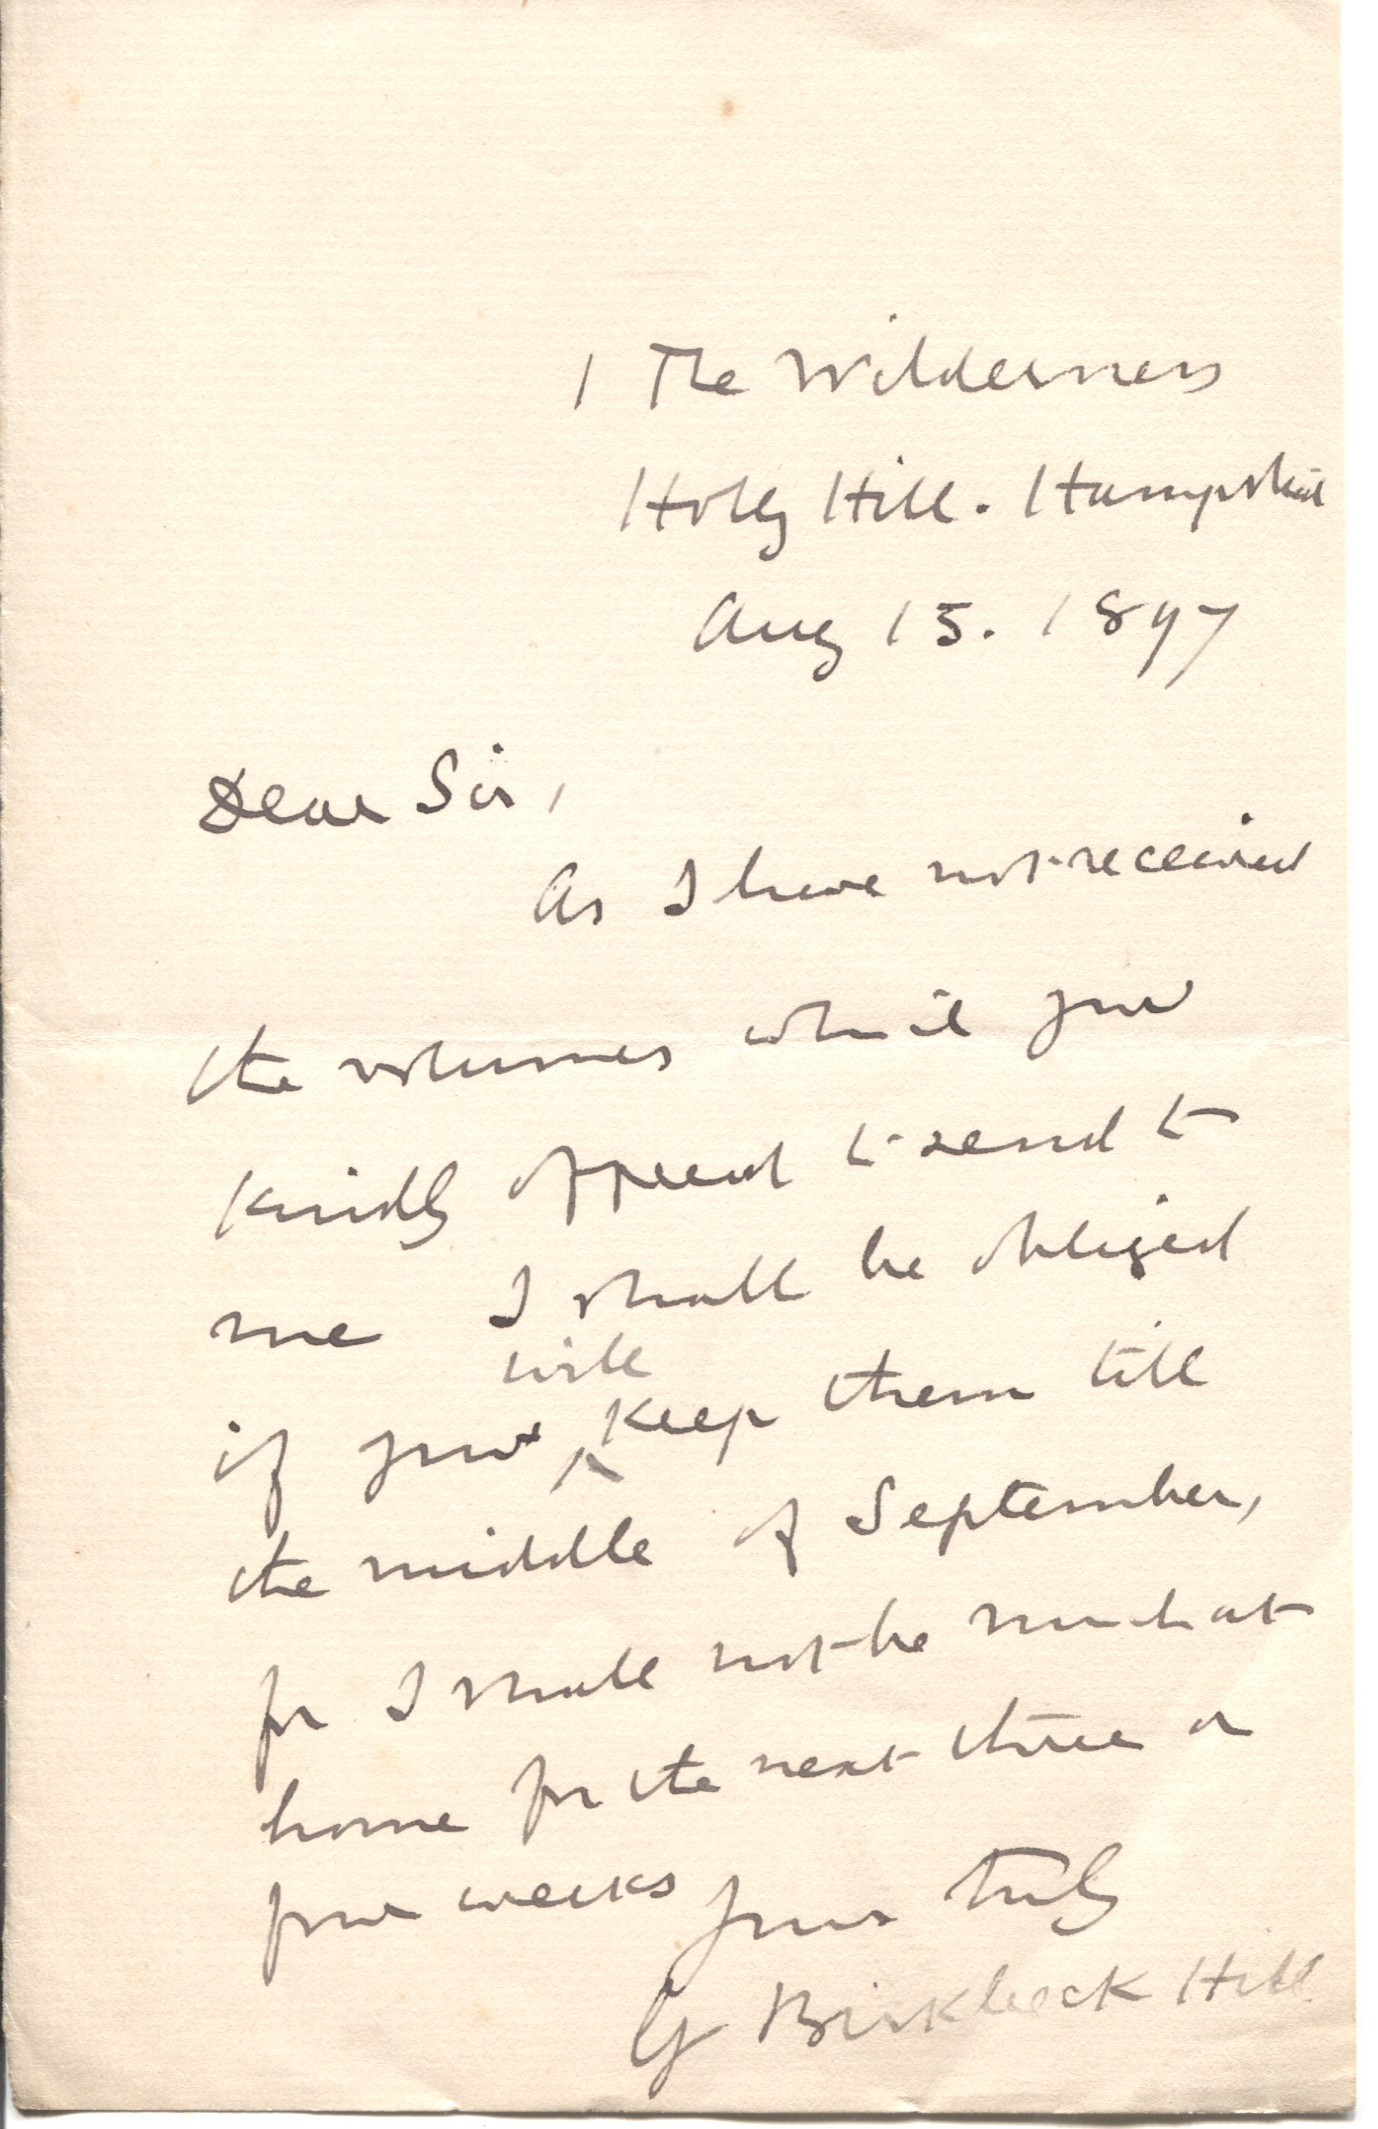 1 The Wilderness
Holly Hill. Hampstead
Aug 15. 1897
Dear Sir,
As I have not received
the volumes which you
kindly offered to send to
me I shall be obliged
will
if you ^ keep them till
the middle of September,
for I shall not be much at
home for the next three or
four weeks
Yours truly
G Birkbeck Hill